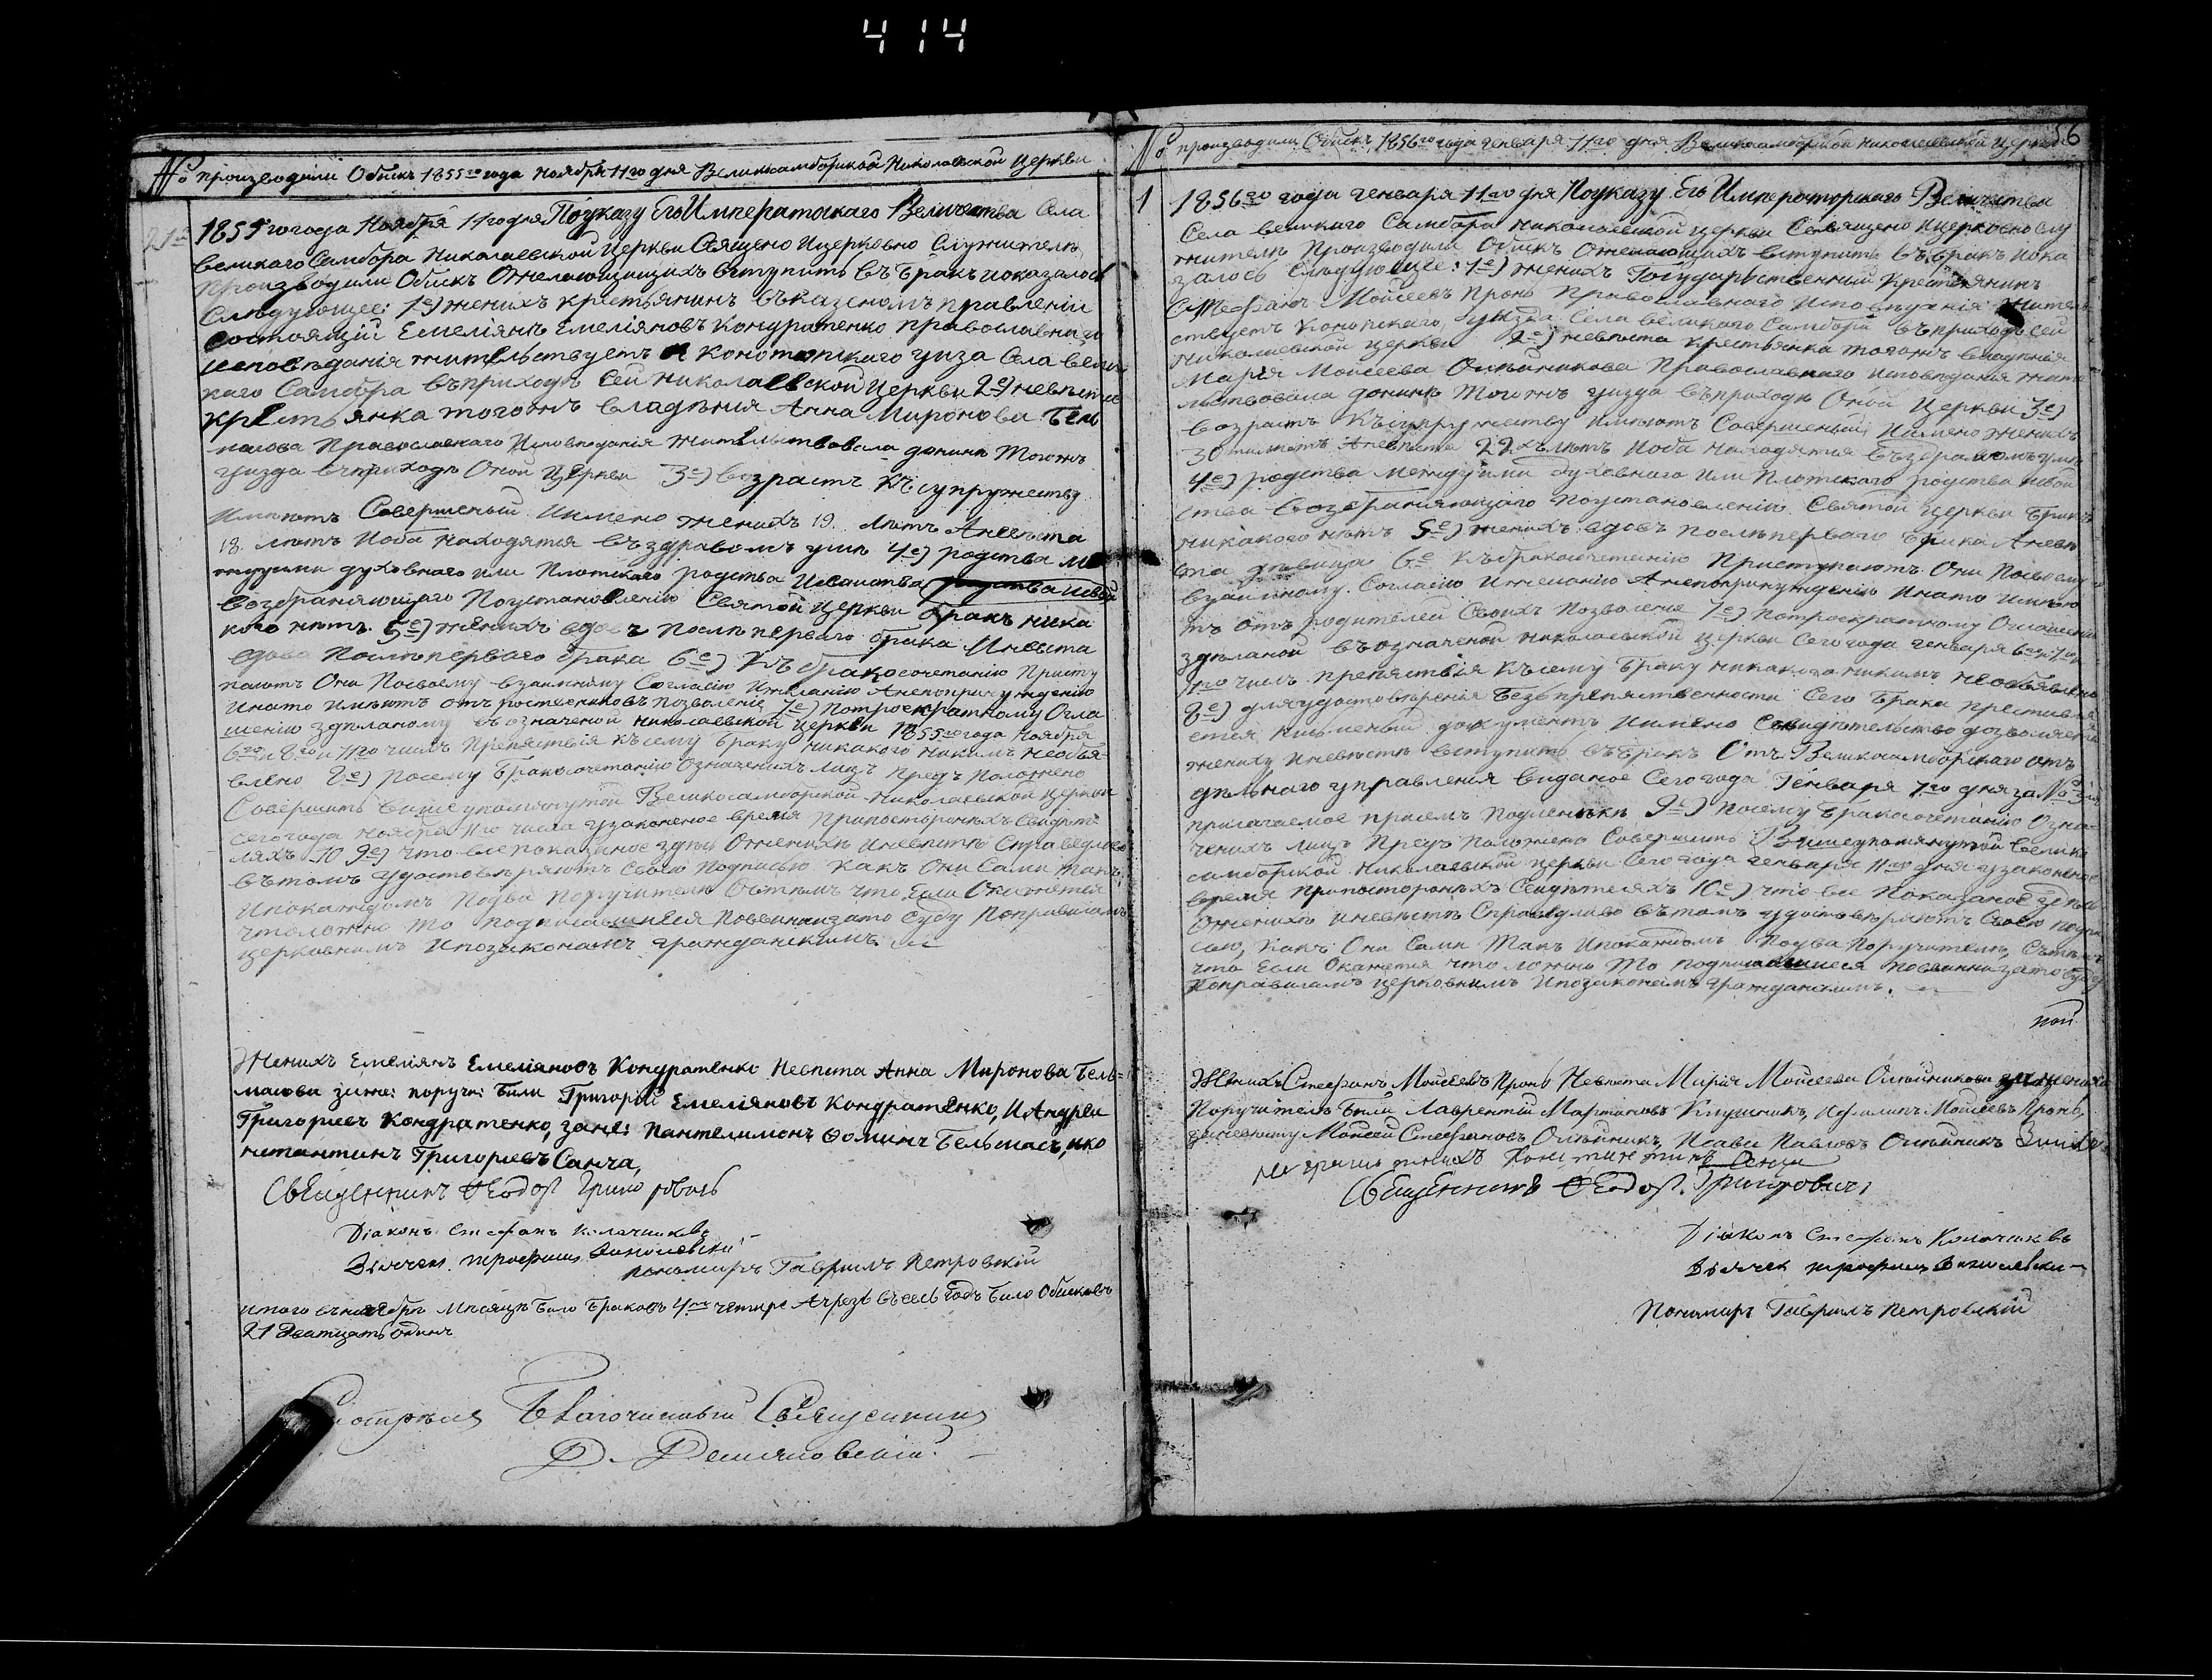 414
№ производили Обыскъ 1855го года Ноября 11го дня Великосамборской Николаевской Церкви
21й
1855го года Ноября 11го дня Поуказу Его Императоскаго Величества Села
великаго Самбора Николаевской Церкви Священо Ицерковно Служители
производили Обискъ Ожелающищихъ вступить въ Бракъ показалось
Слюдующее: 1е) женихъ крестьянинъ въказеномъ правленіи
состоящій Емеліянъ Емеліяновъ Кондратенко православнаго
исповѣданія жительствуетъ Конотопскаго уизда Села вели
каго Самбора въприходѣ Сей Николаевской Церкви 2е) невѣста
крестьянка тогожъ владѣния Анна Миронова Бель
масова Православнаго Исповѣданія жительствовала донинѣ Тогожъ
уизда въприходѣ Оной Церкви 3е) возрастъ Къ супружеству
Имѣютъ Совершеный Имено женихъ 19. лѣтъ Аневѣста
18. лѣтъ Иоба находятся въздравомъ умѣ 4е) родства ме
ждуими духовнаго или Плотскаго родства Исвойства родства исвой
возбраняющаго Поустановленію Святой Церкви бракъ ника
кого нѣтъ. 5е) женихъ вдовъ послѣ перваго брака Инвѣста
вдова послѣ перваго брака 6е) Къ бракосочетанію Присту
паютъ Они Посвоему взаимному Согласію Ижеланію Анепопринужденію
Инато имѣютъ отъ роствениковъ позволеніе 7е) Потроекратному Огла
шенію зделаному въозначеной Николаевской Церкви 1855го года Ноября
6го и 8го и 11го числъ Препятствія къ сему браку никакого никимъ необъя
влено 8е) Посему Бракосочетанію Означенихъ лицъ предъ положено
Совершить Вишеупомянутой Великосамборской Николаевской Церкви
сегогода Ноября 11го числа узаконеное время Припосторонихъ Свидѣте
ляхъ 9е) что все показаное здѣсь Оженихѣ Иневѣстѣ Справедливо
вътомъ удостовѣряютъ Своею Подписью Какъ Они Сами Такъ
Ипокаждомъ Подва Поручители Сътѣмъ что Если Окажется
чтоложно То подписавшиеся Повинни зато Суду Поправиламъ
церковнимъ Ипозаконамъ гражданскимъ.
Женихъ Емеліянъ Емеліяновъ Кондратенко Невѣста Анна Миронова Бель=
масова зажен: поручи: Били Григорій Емеліяновъ Кондратенко, ИАндреи
Григориевъ Кондратенко, зане: Пантелимонъ Фоминъ Бельмасъ, ико
нстантинъ Григориевъ Санча,
Священникъ Феодор Григоровичъ
Діаконъ Стефанъ Колачиковъ
Дьячекъ Трофимъ
Пономаръ Гавриилъ Петровскій
Итого въ ноябрѣ Мѣсяцѣ Било Браковъ 4ре четире Ачрезъ въсесь Годъ Било Обисковъ
21 Дватцать Одинъ
Смотрѣлъ Благочинный Священникъ
Д. Демяновскій.
56
№ производили Обискъ 1856го года генваря 11го дня Великосамборской Николаевской Церкви
1
1856го года генваря 11го дня Поуказу Его Императорскаго Величества
Села великаго Самбора Николаевской церкви Священо Ицерковно слу
жители Производили Обискъ Ожелающихъ вступить въ Бракъ Пока
залось Слѣдующее: 1е) женихъ Государственный Крестянинъ
Стефанъ Мойсеевъ Пронь Православнаго Исповѣданія жител
ствуетъ Конопскаго уизда Села великаго Самбора въприходѣ Сей
Николаевской церкви 2е) невѣста Крестьянка тогожъ владѣния
Марія Моисеева Олѣйникова Православнаго исповѣдания жите
льтвовала донинѣ Тогожъ уизда въприходѣ Оной Церкви 3е)
возрастъ Къ супружеству Имѣютъ Совершеный Имено женихъ
30 тилѣтъ Аневѣста 22хъ лѣтъ Иоба находятся въздравомъ умѣ
4е) родства Междуими духовнаго или Плотскаго родства исвой
ства Возбраняющаго Поустановленію Святой Церкви бракъ
никакого нѣтъ 5е) женихъ вдовъ послѣ перваго брака Аневѣ
ста дѣвица 6е Къ бракосочетанію Приступаютъ Они Посвоему
взаимному Согласію Ижеланію Анепопринужденію Инато имѣю
тъ отъ родителей Своихъ Позволеніе 7е) Потроекратному Оглашенію
зделаной въозначеной Николаевской церкви Сегогода генваря 6го и 7го и
11го числъ препятствія Къ сему браку никакого никимъ необъявлено
8е) для удостовѣренія Безъ препятственности Сего Брака преставля
ется писменый документъ Имено Свидѣтельство дозволяется
жениху Иневѣсти вступить въ Бракъ Отъ Великосамборскаго отъ
дѣльнаго управления виданое Сегогода Генваря 7го дня за № 3мъ
прилагаемое присемъ Подленикѣ 9е) Посему бракосочетанію Озна
ченихъ лицъ Предъ положено Совершить Вишеупомянутой Велико
самборской Николаевской церкви Сегогода генваря 11го дня узаконеное
время Припосторонихъ Свидѣтеляхъ 10е) что все Показаное здѣсь
Оженихѣ Иневѣстѣ Справедливо вътомъ удостовѣряютъ Своею подпи
сью, Какъ Они Сами Такъ Ипокаждомъ Подва Поручители, Сътѣмъ
что Если Окажется что ложно То подписавшиеся повинни зато Суду
Поправиламъ церковнимъ Ипозаконамъ гражданскимъ.
Женихъ Стефанъ Моисеевъ Пронь Невѣста Марія Моисеева Олѣйникова зажениха
Поручитель Били Лаврентій Мартиновъ Клушникъ, Моисеевъ Пронь,
заневѣсту Моисей Стефановъ Олѣйникъ, Исавъ Павловъ Олѣйникъ
неграмотнихъ Константинъ Санча
Священникъ Феодор. Григоровичъ
Діаконъ Стефанъ Колачиковъ
Дьячек Трофимъ
Пономаръ Гавриилъ Петровскій